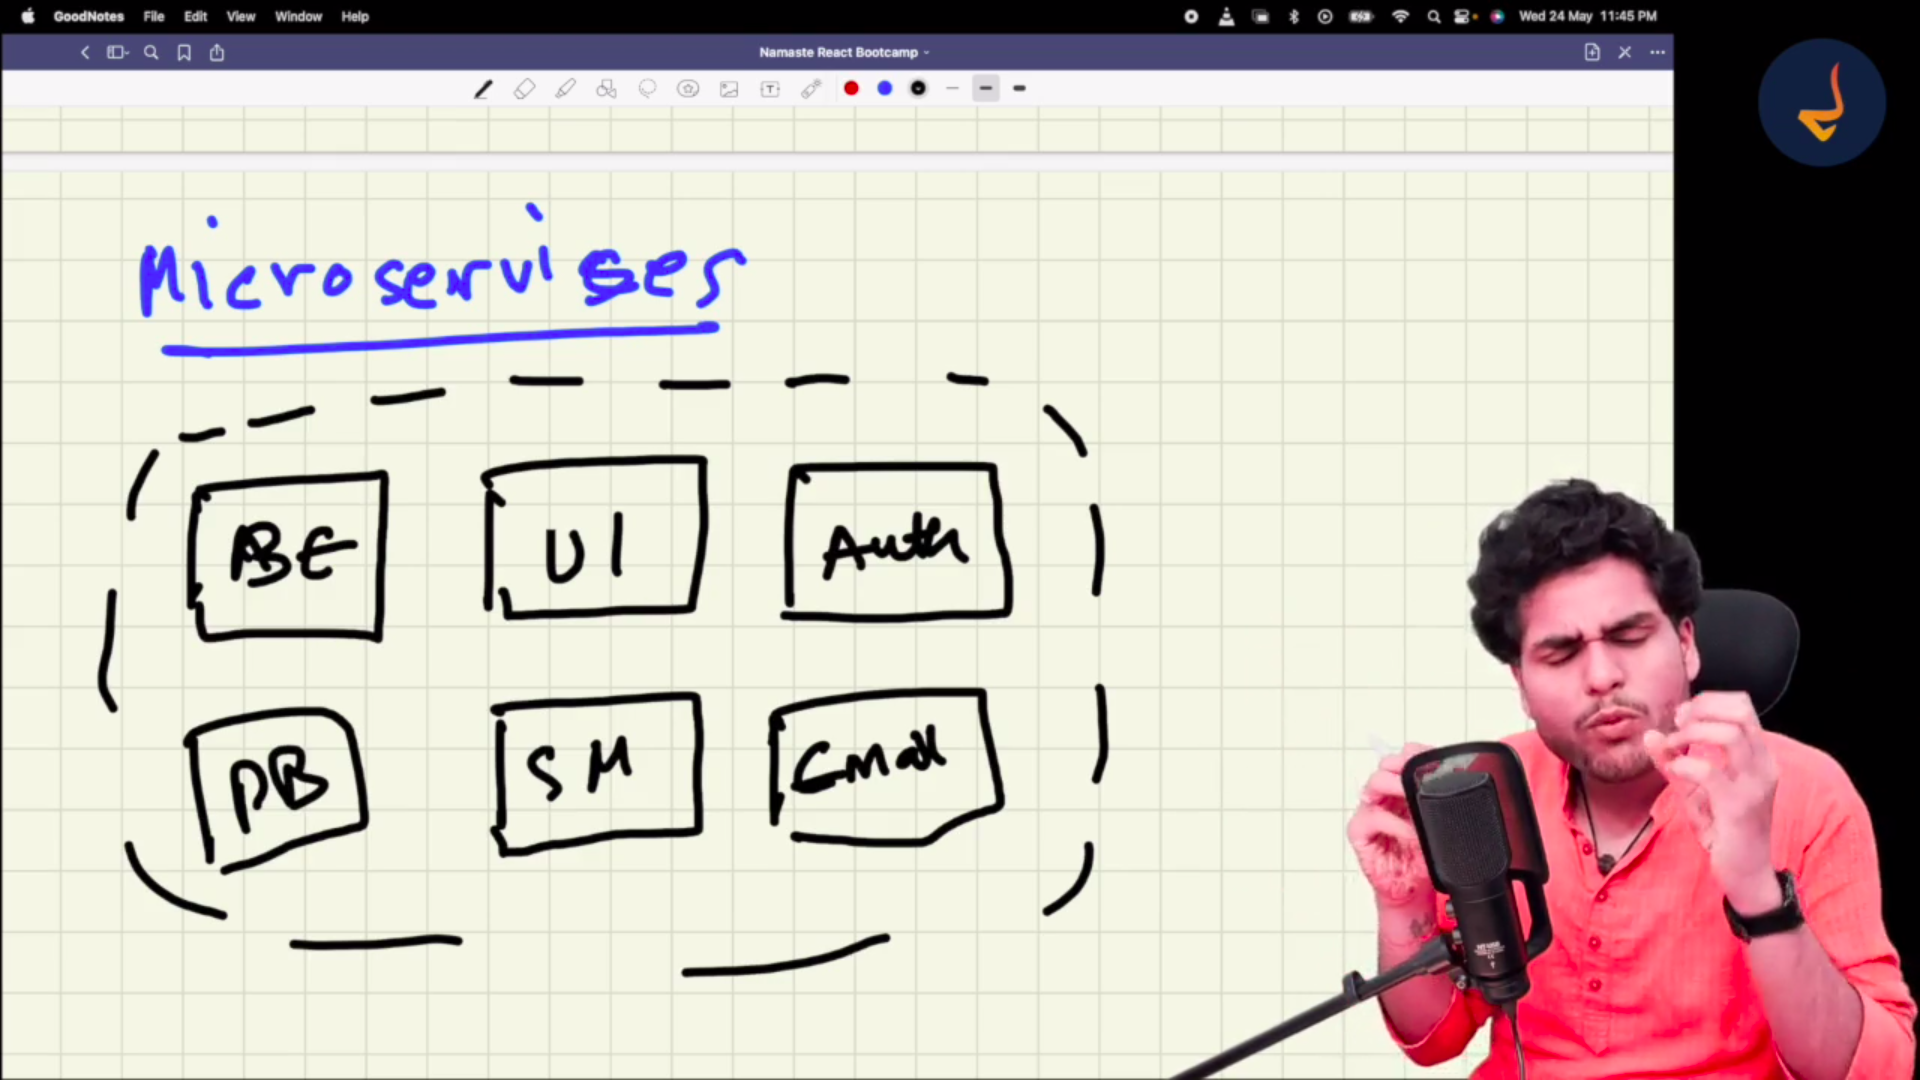 GoodNotes File Edit View Window Help Wed 24 May 11:45 PM
Namaste React Bootcamp
T
Microservises
ABE UI Auth
DB SM Email